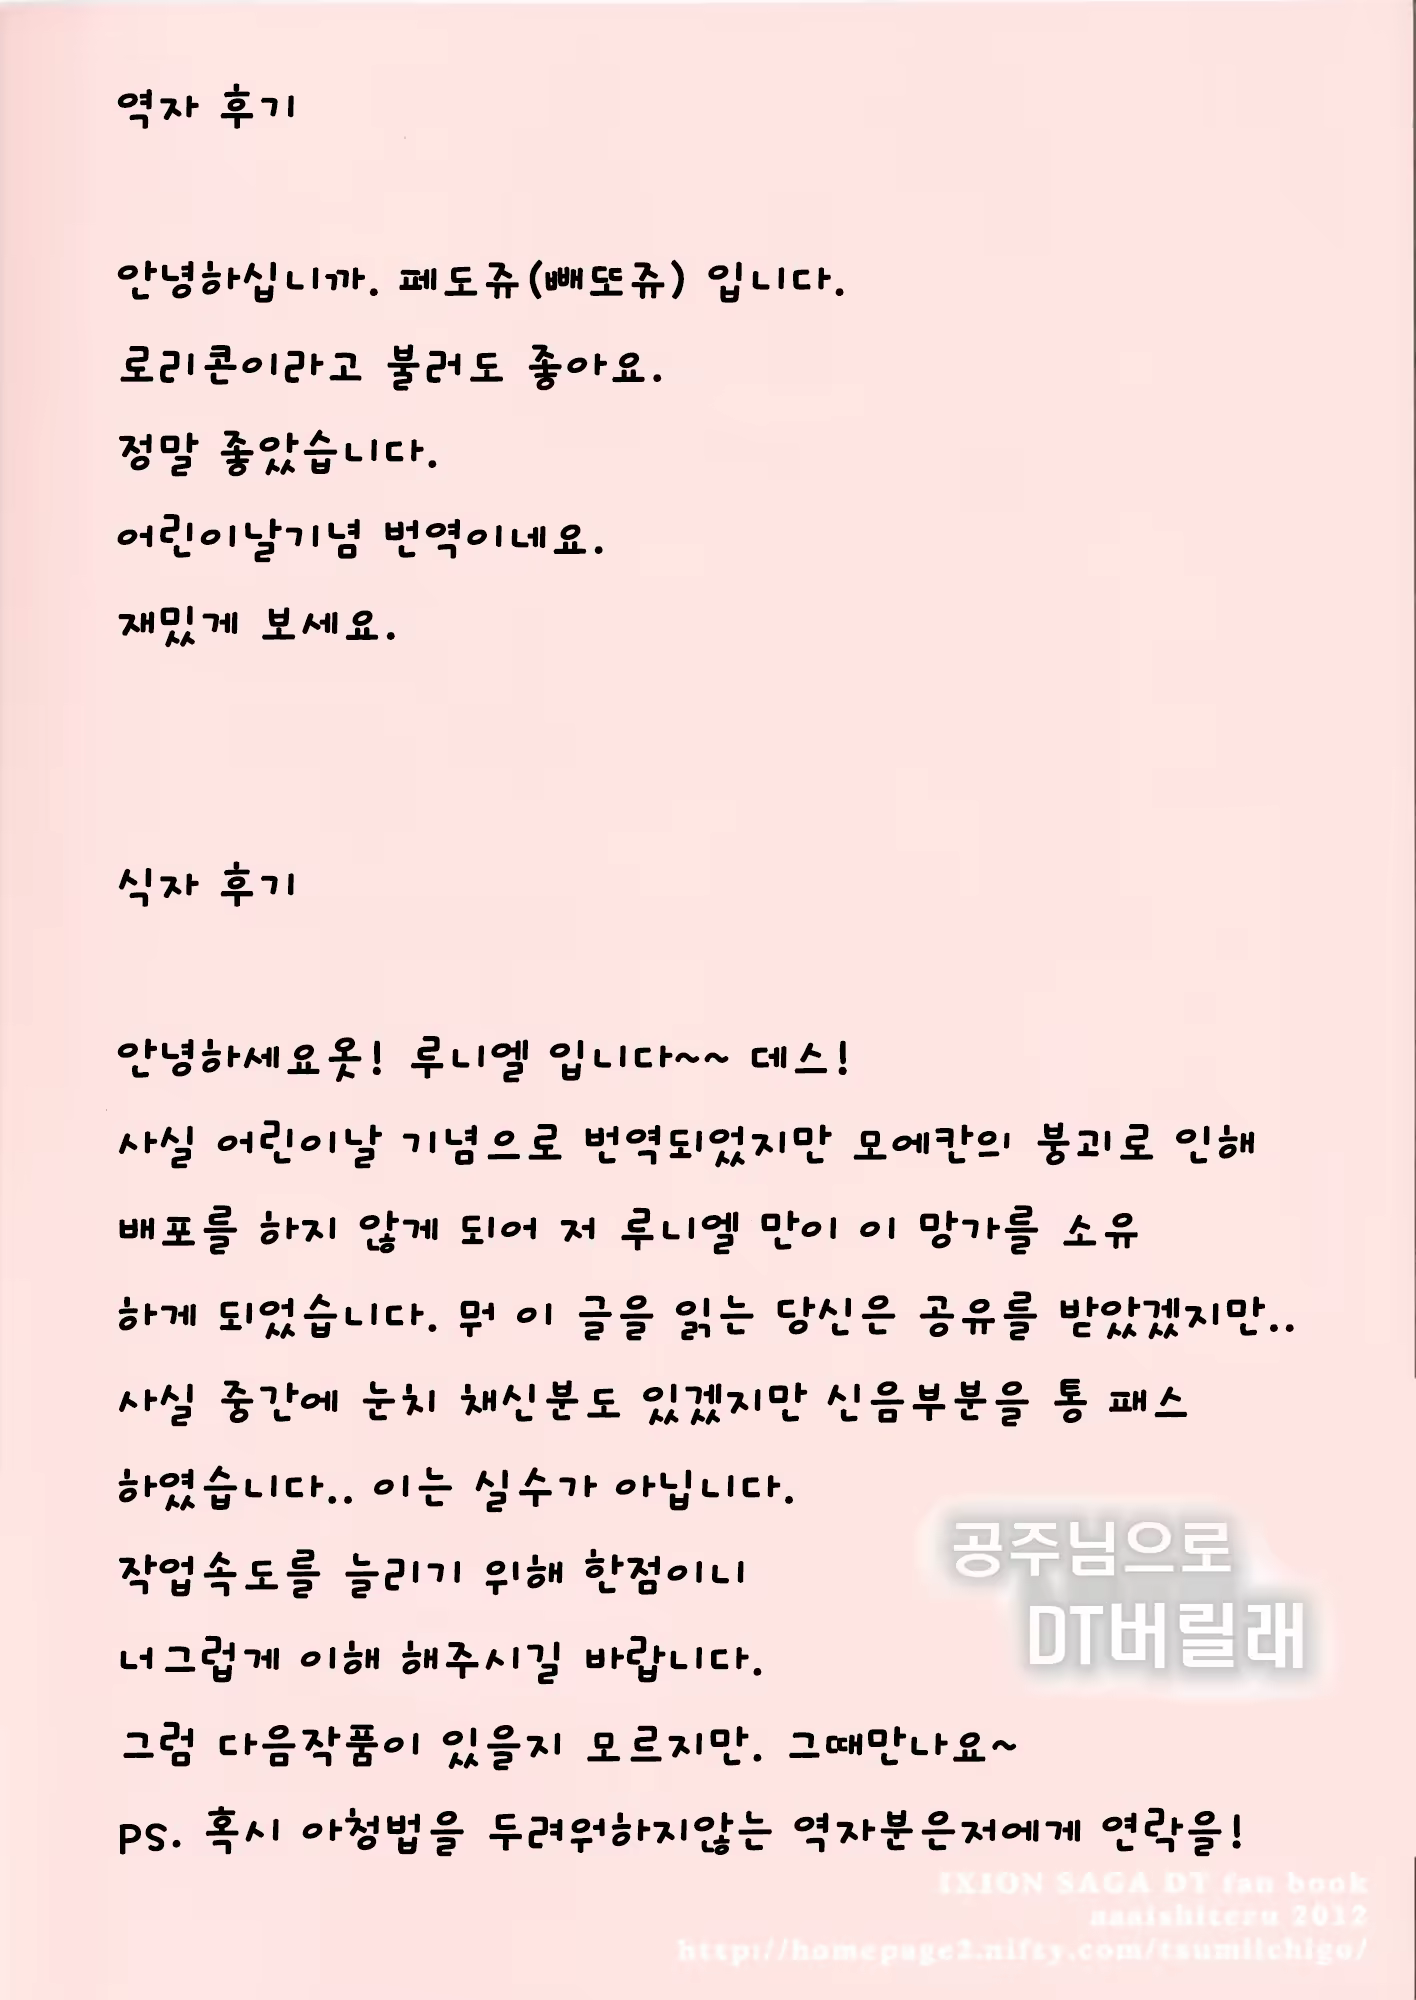 역자 후기
안녕하십니까. 페도쥬(빼또쥬) 입니다.
로리콘이라고 불러도 좋아요.
정말 좋았습니다.
어린이날기념 번역이네요.
재밌게 보세요.
식자 후기
안녕하세요옷! 루니엘 입니다~~ 데스!
사실 어린이날 기념으로 번역되었지만 모에칸의 붕괴로 인해
배포를 하지 않게 되어 저 루니엘 만이 이 망가를 소유
하게 되었습니다. 뭐 이 글을 읽는 당신은 공유를 받았겠지만..
사실 중간에 눈치 채신분도 있겠지만 신음부분을 통 패스
하였습니다.. 이는 실수가 아닙니다.
작업속도를 늘리기 위해 한점이니
너그럽게 이해 해주시길 바랍니다.
그럼 다음작품이 있을지 모르지만. 그때만나요~
PS. 혹시 아청법을 두려워하지않는 역자분은저에게 연락을!
공주님으로
DT버릴래
IXION SAGA DT fan book
aanishiteru 2012
http://homepage2.nifty.com/tsumiichigo/